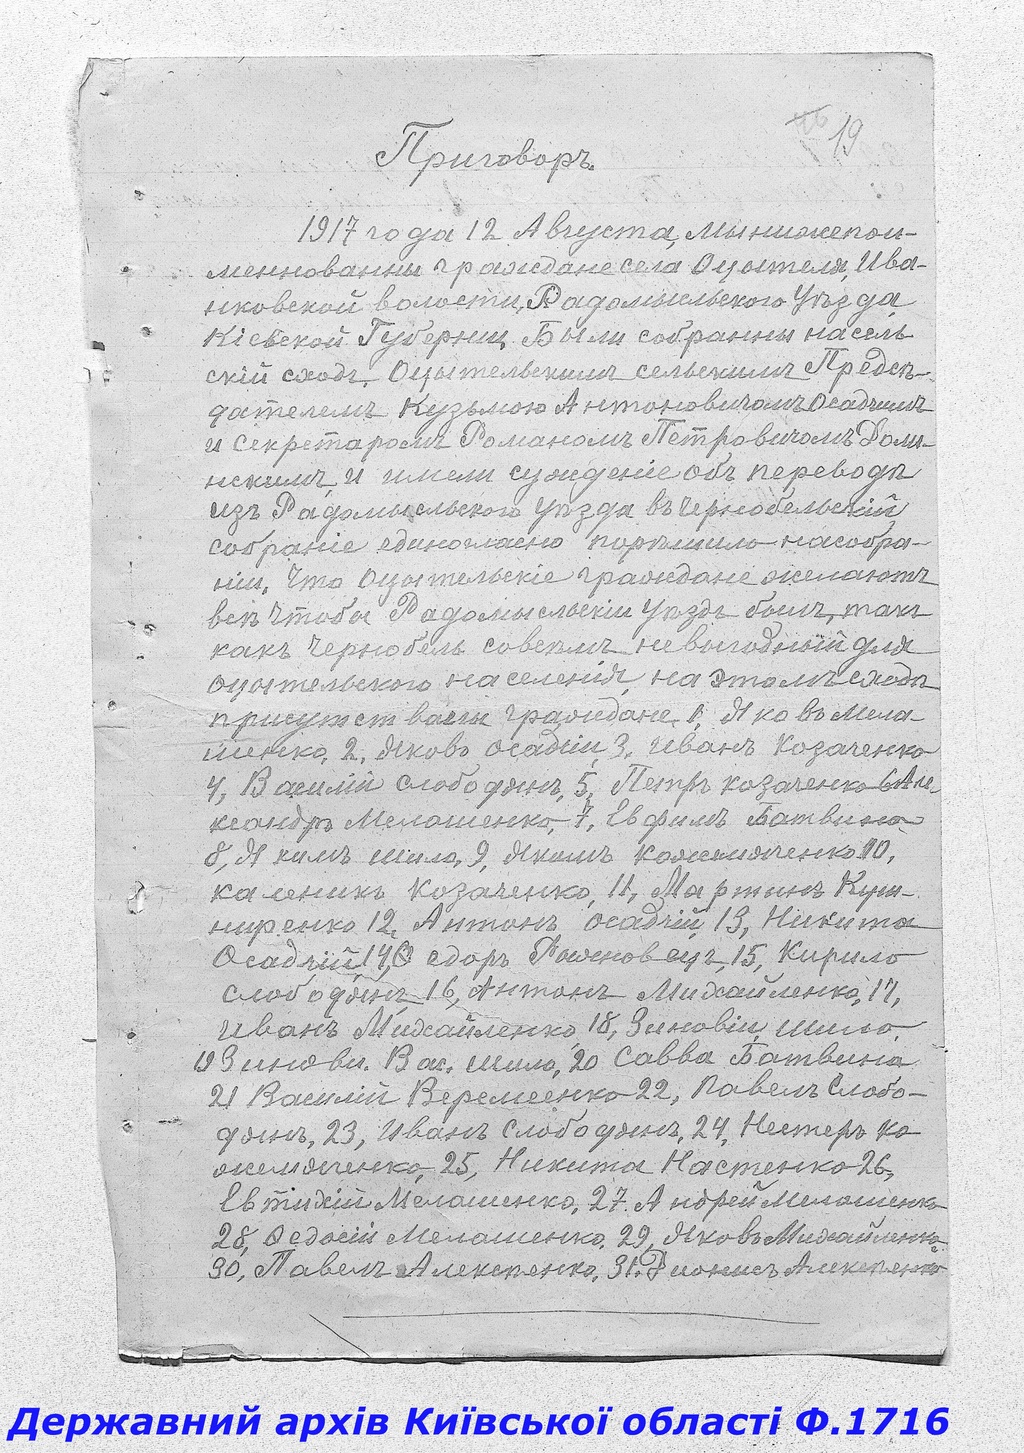 19
Приговоръ.
1917 года 12 Августа, мы нижепои-
меннованны граждане села Оцытеля, Ива-
нковской волости, Радомысльского Уѣзда
Кіевской Губерниц Были собранны насель-
скій сходъ, Оцытельскимъ сельскимъ Предсѣ-
дателемъ Кузьмою Антоновичомъ Осадчимъ
и секретаромъ Романомъ Петровичомъ Доли-
нскимъ, и имели сужденіе объ переводѣ
изъ Радомысльского уѣзда въ Чернобельскій
собраніе единогласно порѣшило на собра-
ніи, Что Оцытельскіе граждане желаютъ
всѣ Чтобы Радомысльскіи Уѣздъ былъ, такъ
какъ Чернобель совсѣмъ невыгодный для
оцытельского населенія, на этомъ сходѣ
присутствовали граждане, 1, Яковъ Мела-
шенко, 2, Яковъ Осадчіи, 3, Иванъ Козаченко
4, Василій Слободянъ, 5, Петръ Козаченко 6 Але-
ксандръ Мелашенко, 7, Евфимъ Батвина
8, Якимъ Шило, 9, Якимъ Кожемяченко 10,
Каленикъ Козаченко, 11, Мартинъ Куш-
ниренко 12, Антонъ Осадчій 13, Никита
Осадчій 14, Ѳедоръ Раженовецъ, 15, Кирило
Слободянъ, 16, Антонъ Михайленко, 17,
Иванъ Михайленко, 18, Зиновіи Шило,
19 Зинови. Вас. Шило, 20 Савва Батвина
21 Василій Веремеенко 22, Павелъ Слобо-
дянъ, 23, Иванъ Слободянъ, 24, Нестеръ Ко
жемяченко, 25, Никита Настенко 26,
Евтихій Мелашенко, 27. Андрей Мелашенко
28, Ѳедосій Мелашенко, 29, Яковъ Михайленко
30, Павелъ Алексѣенко, 31. Дионисъ Алексѣенко
Державний архів Київської області Ф.1716